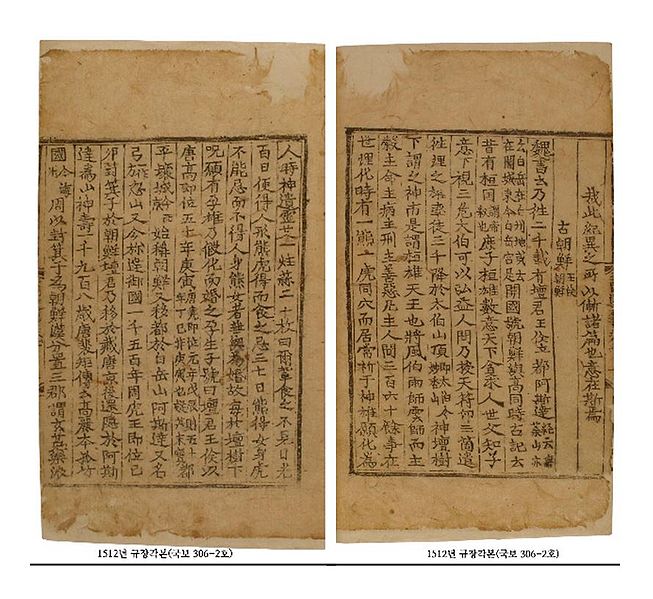 哉此紀異之所以慚諸篇也意在斯焉
古朝鮮 王儉朝鮮
魏書云乃徃二千載有壇君王儉立都阿斯達 經云無葉山亦
云白岳在白州地或云在開城東今白岳宮是 開國號朝鮮與高同時古記云
昔有桓国 謂帝釋也 庶子桓雄數意天下貪求人世父知子
意下視三危太伯可以弘益人間乃授天符印三箇遣
徃理之雄率徒三千降於太伯山頂 即太伯今妙香山 神壇樹
下謂之神市是謂桓雄天王也將風伯雨師雲師而主
穀主命主病主刑主善惡凡主人間三百六十餘事在
世理化時有一熊一虎同穴而居常祈于神雄願化為
人時神遺靈艾一炷蒜二十枚曰爾輩食之不見日光
百日便得人形熊虎得而食之忌三七日熊得女身虎
不能忌而不得人身熊女者無與為婚故每於壇樹下
呪願有孕雄乃假化而婚之孕生子號曰壇君王儉以
唐高即位五十年庚寅 唐堯即位元年戊辰則五十年丁巳非庚寅也疑其未實 都
平壤城 今西京 始稱朝鮮又移都於白岳山阿斯達又名
弓 一作方 忽山又今弥達御國一千五百年周虎王即位己
卯封箕子於朝鮮壇君乃移於藏唐京後還隱於阿斯
達為山神壽一千九百八歲唐裴矩傳云高麗本孤竹
國 今海州 周以封箕子為朝鮮漢分置三郡謂玄菟樂浪
1512년 규장각본(국보 306-2호)
1512년 규장각본(국보 306-2호)